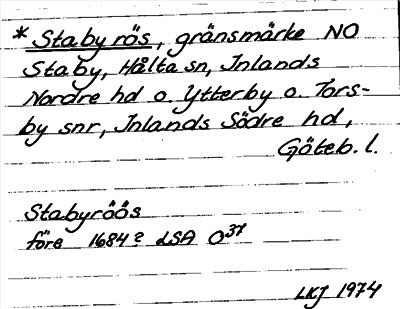 * Staby rös, gränsmärke NO
Staby, Hålta sn, Inlands
Nordre hd o. Ytterby o. Tors-
by snr, Inlands Södre hd,
Göteb. l.
Stabyröös
före 1684? LSA O37
LKJ 1974